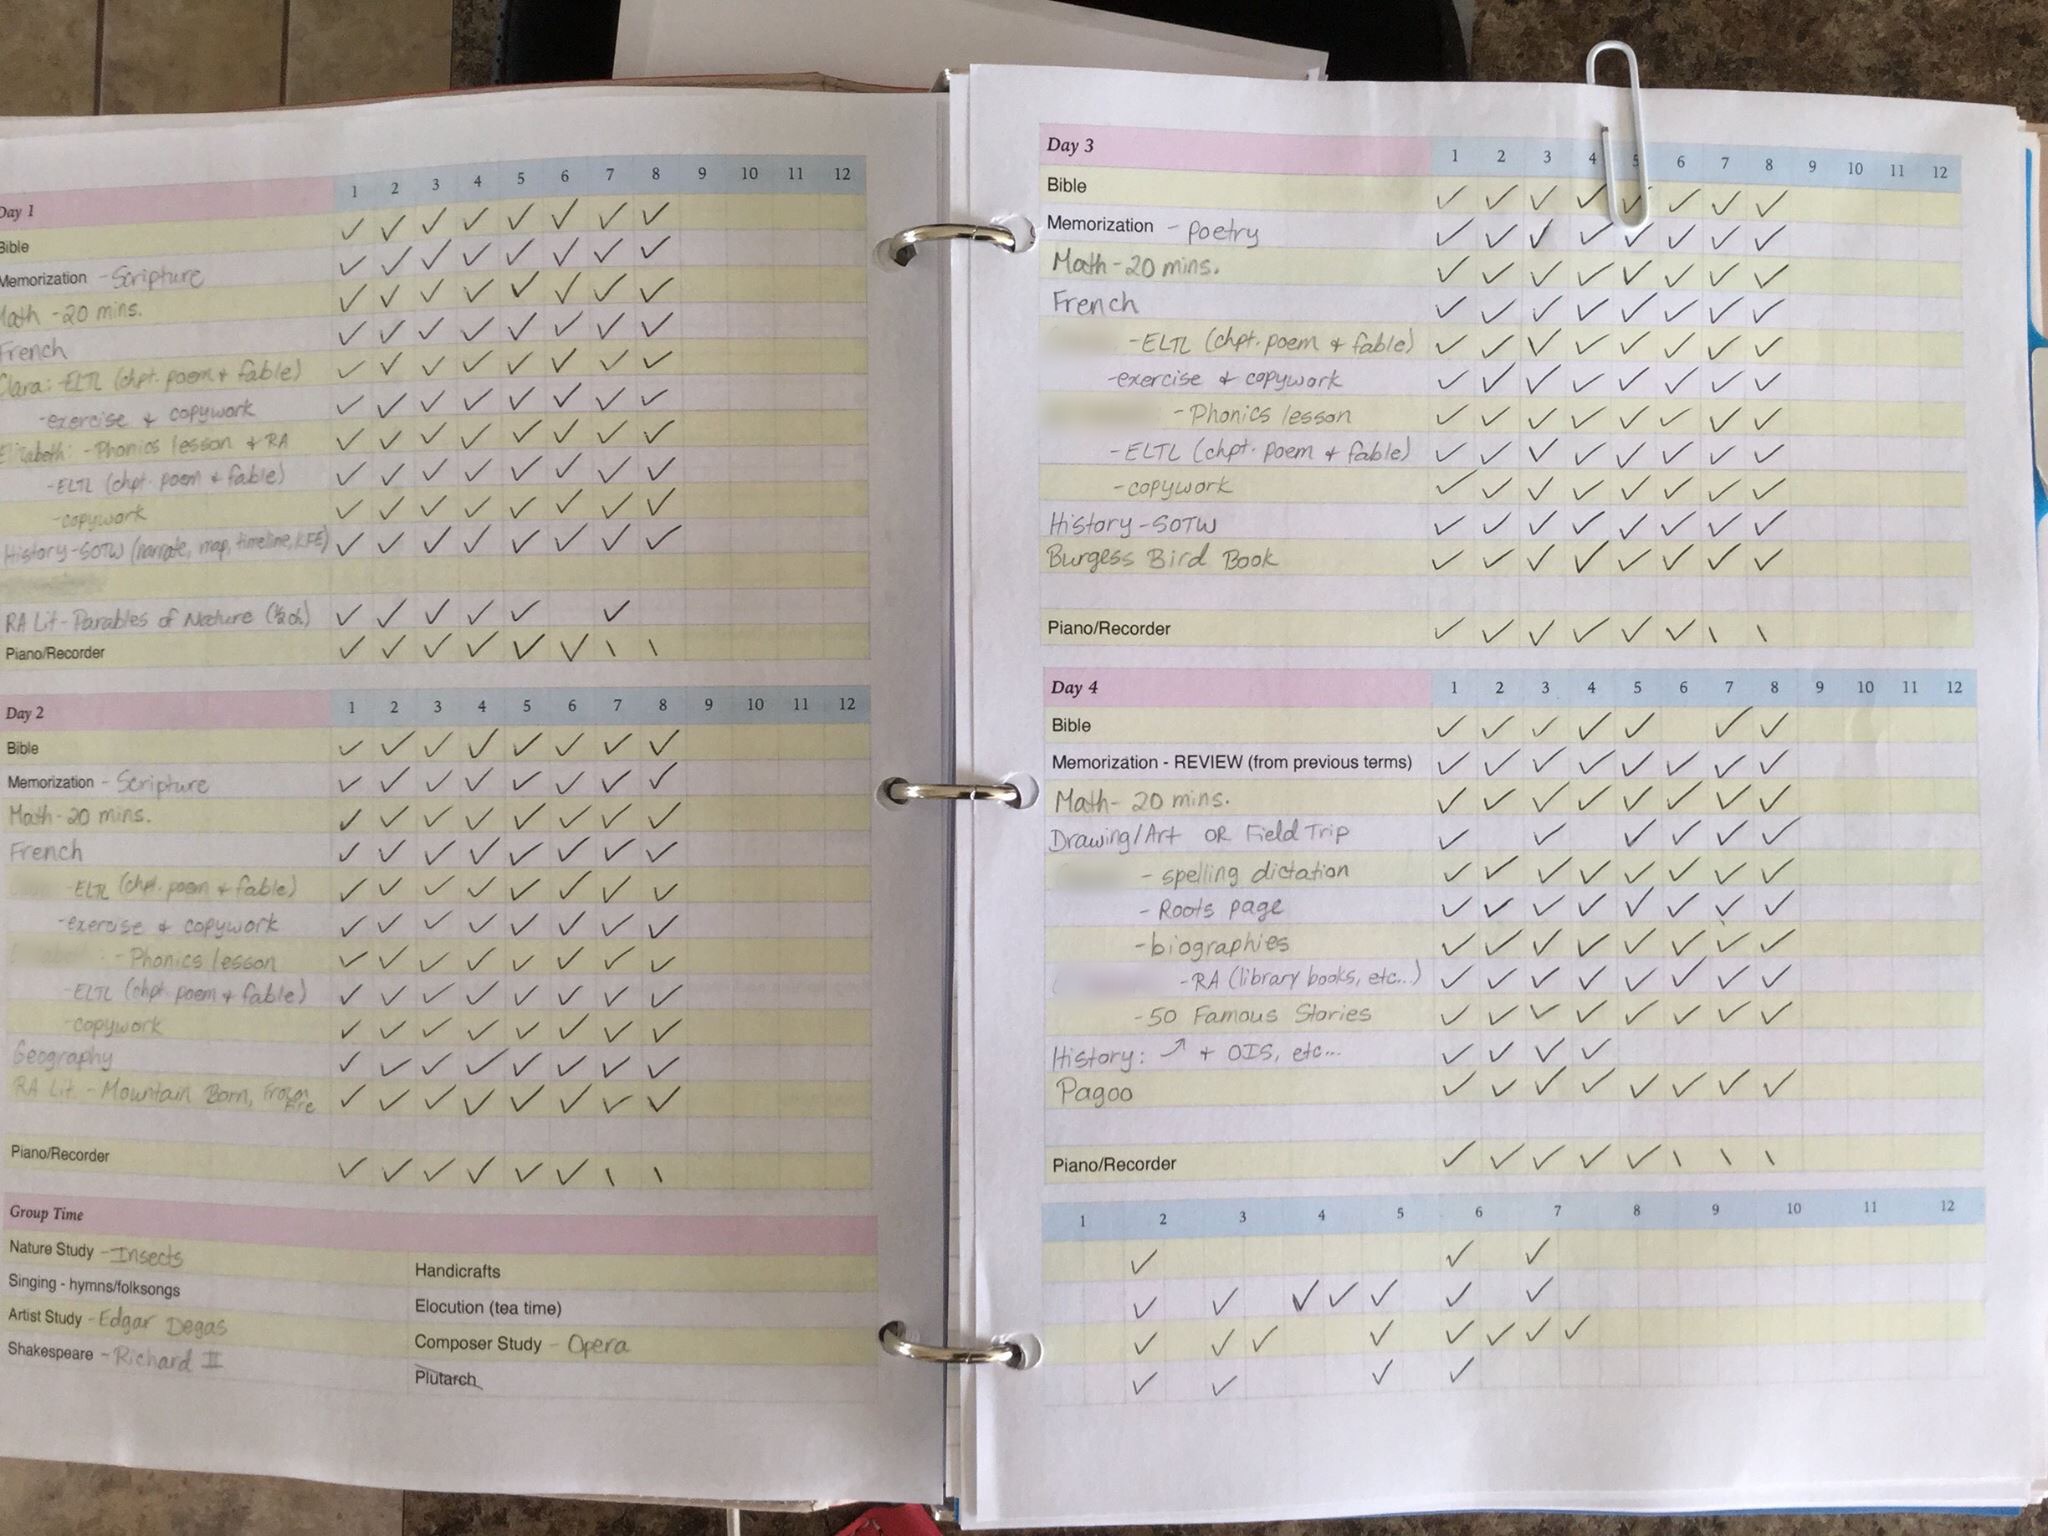 Day 1 1 2 3 4 5 6 7 8 9 10 11 12
Bible
Memorization - Scripture
Math - 20 mins.
French
Clara: - ELTL (chpt. poem + fable)
- exercise + copywork
Elizabeth: - Phonics lesson + RA
- ELTL (chpt. poem + fable)
- copywork
History - SOTW (narrate, map, timeline, KFE)
RA Lit - Parables of Nature (½ ch)
Piano/Recorder
Day 2 1 2 3 4 5 6 7 8 9 10 11 12
Bible
Memorization - Scripture
Math - 20 mins.
French
- ELTL (chpt. poem + fable)
- exercise + copywork
- Phonics lesson
- ELTL (chpt. poem + fable)
- copywork
Geography
RA Lit. - Mountain Born, Frozen Fire
Piano/Recorder
Group Time
Nature Study - Insects
Singing - hymns/folksongs
Artist Study - Edgar Degas
Shakespeare - Richard II
Handicrafts
Elocution (tea time)
Composer Study - Opera
Plutarch
Day 3 1 2 3 4 5 6 7 8 9 10 11 12
Bible
Memorization - poetry
Math - 20 mins.
French
- ELTL (chpt. poem + fable)
- exercise + copywork
- Phonics lesson
- ELTL (chpt. poem + fable)
- copywork
History - SOTW
Burgess Bird Book
Piano/Recorder
Day 4 1 2 3 4 5 6 7 8 9 10 11 12
Bible
Memorization - REVIEW (from previous terms)
Math - 20 mins.
Drawing/Art OR Field Trip
- spelling dictation
- Roots page
- biographies
- RA (library books, etc...)
- 50 Famous Stories
History: ↗ + OIS, etc...
Pagoo
Piano/Recorder
1 2 3 4 5 6 7 8 9 10 11 12